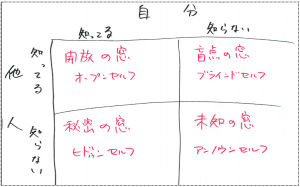 自分
知ってる
知らない
他人
知ってる
開放の窓
オープンセルフ
盲点の窓
ブラインドセルフ
知らない
秘密の窓
ヒドゥンセルフ
未知の窓
アンノウンセルフ